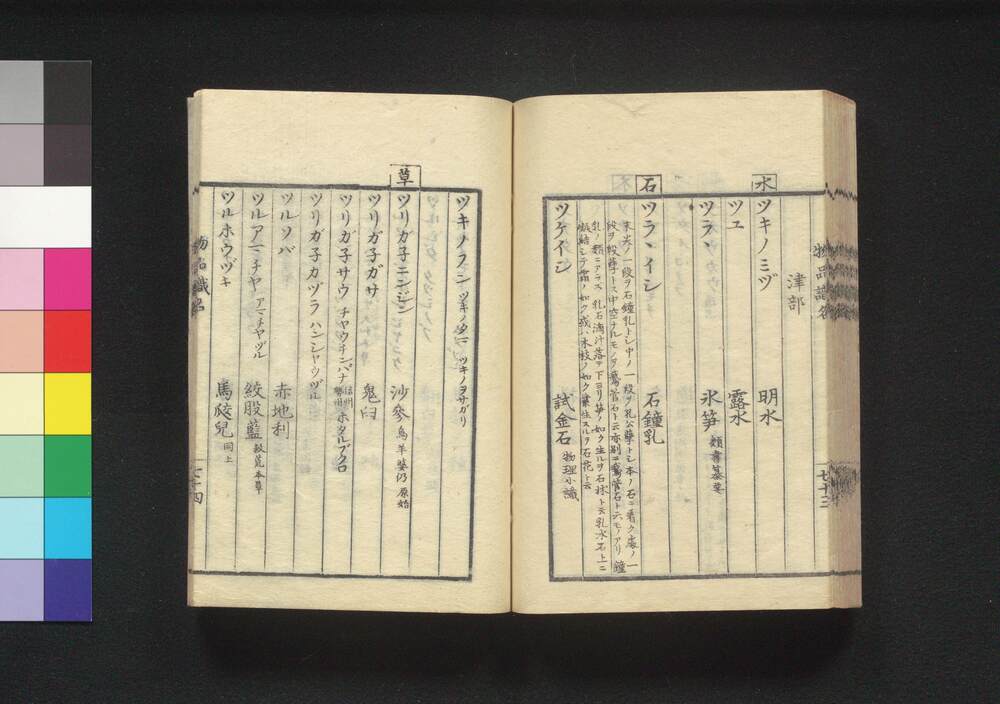 物品識名
津部
七十三
水
ツキノミヅ 明水
ツユ 露水
ツラヽ 氷笋 類書纂要
石
ツラヽイシ 石鐘乳
末尖ノ一段ヲ石鐘乳トシ中ノ一段ヲ孔公孽トシ本ノ石ニ着ク處ノ一
段ヲ殷孽トス中空ナルモノヲ鵞管石ト云亦別ニ鵞管石ト云モノアリ鐘
乳ノ類ニアラズ 乳石滴汁落テ下ヨリ笋ノ如ク生ルヲ石牀ト云乳水石上ニ
凝結シテ霜ノ如ク或ハ木枝ノ如ク叢生スルヲ石花ト云
ツケイシ 試金石 物理小識
ツキノフン ツキノタマ ツキノヲサガリ
草
ツリガ子ニンジン 沙參 烏羊 原始
ツリガ子ガサ 鬼臼
ツリガ子サウ チヤウチンバナ 信州 ホタルブクロ
ツリガ子カヅラ ハンシャウヅル
ツルソバ 赤地利
ツルアマチヤ アマチヤヅル 絞股藍 救荒本草
ツルホウヅキ 馬㼎兒 同上
物品識名
七十四